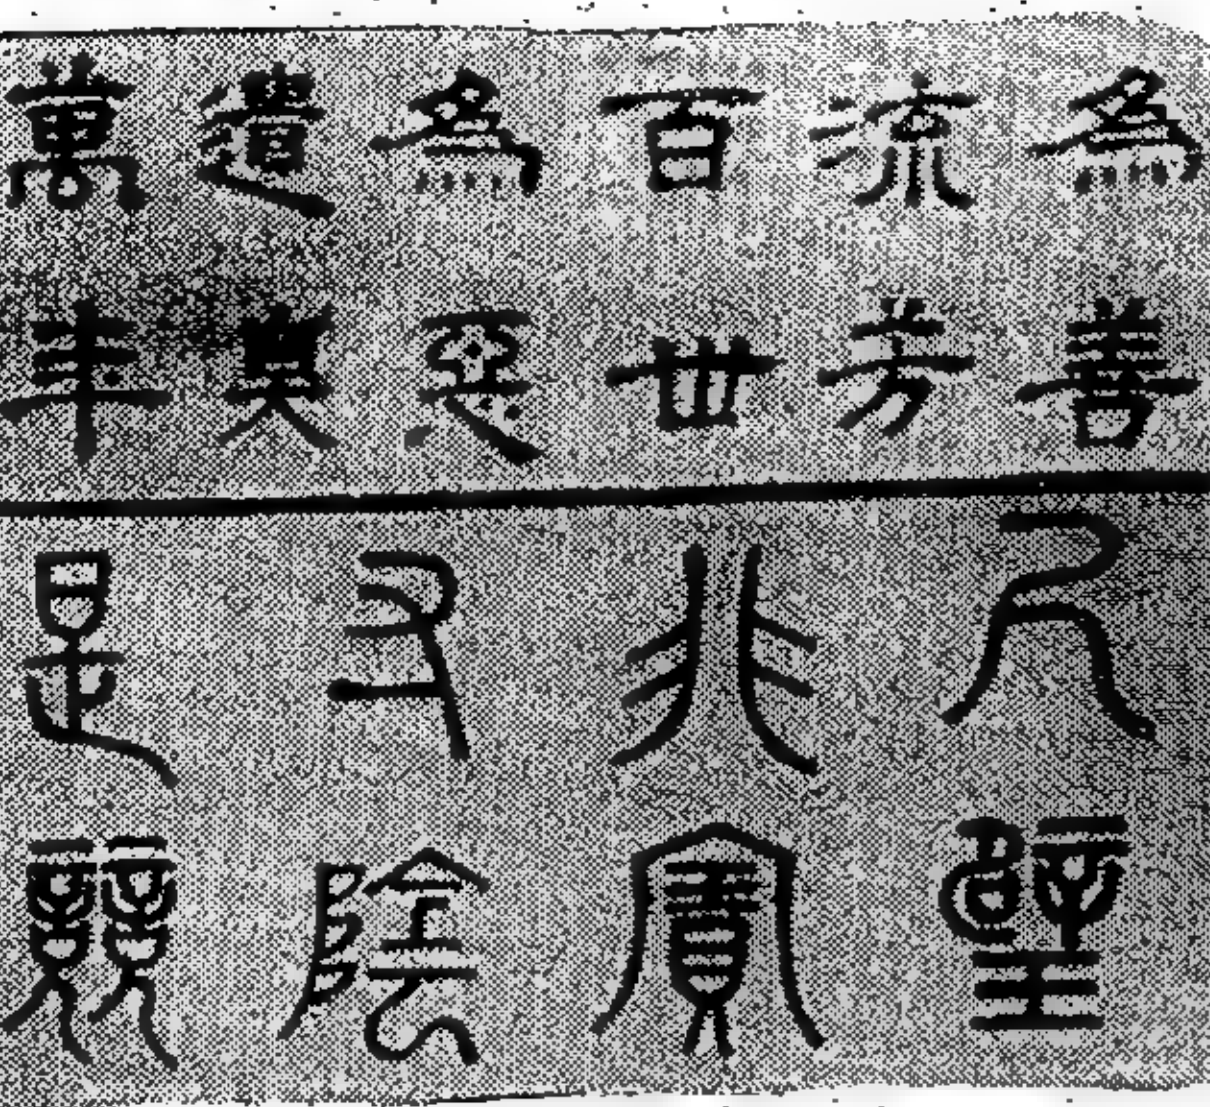 為善
流芳
百世
為惡
遺臭
萬年
尺璧
非寶
寸陰
是競